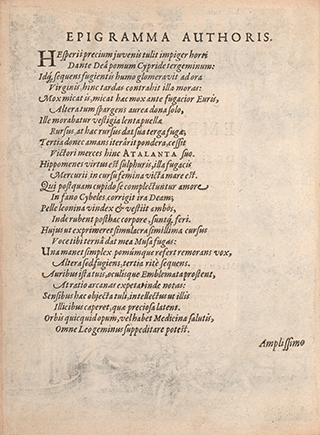 EPIGRAMMA AUTHORIS.
HEsperii precium juvenis tulit impiger horti
Dante Deâ pomum Cypride tergeminum:
Idq; sequens fugientis humo glomeravit ad ora
Virginis, hinc tardas contrahit illa moras:
Mox micat is, micat hæc mox ante fugacior Euris,
Alteratum spargens aurea dona solo,
Ille morabatur vestigia lenta puellæ
Rursus, at hæc rursus dat sua terga fugæ,
Tertia donec amans iterârit pondera, cessit
Victori merces hinc ATALANTA suo.
Hippomenes virtus est sulphuris, illa fugacis
Mercurii, in cursu femina victa mare est.
Qui postquam cupido se complectuntur amore
In fano Cybeles corrigit ira Deam;
Pelle leonina vindex & vestiit ambos,
Inde rubent posthac corpore, suntq; feri.
Hujus ut exprimeret simulacra simillima cursus
Voce tibi ternâ dat mea Musa fugas:
Una manet simplex pomumque refert remorans vox,
Altera sed fugiens, tertia ritè sequens.
Auribus ista tuis, oculisque Emblemata prostent,
At ratio arcanas expetat inde notas:
Sensibus hæc objecta tuli, intellectus ut illis
Illicibus caperet, quæ preciosa latent.
Orbis quicquid opum, vel habet Medicina salutis,
Omne Leo geminus suppeditare potest.
Amplissimo